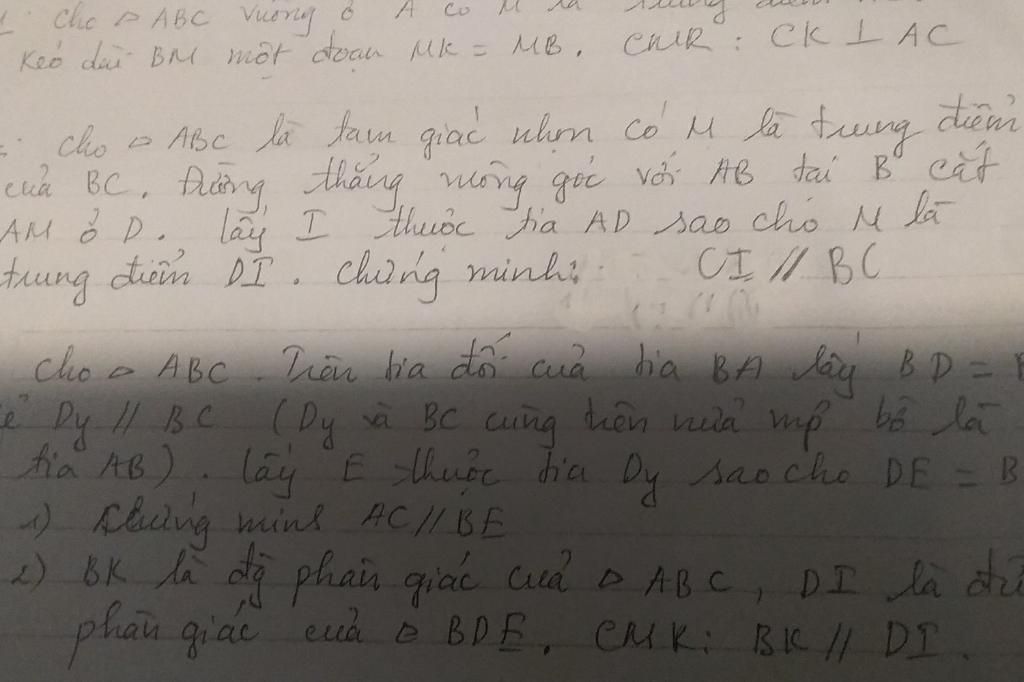 Cho △ ABC vuông ở A có M là trung điểm
Kéo dài BM một đoạn MK = MB. CMR : CK ⊥ AC
Cho △ ABC là tam giác nhọn có M là trung điểm
của BC. Đường thẳng vuông góc với AB tại B cắt
AM ở D. Lấy I thuộc tia AD sao cho M là
trung điểm DI. Chứng minh: CI // BC
Cho △ ABC. Trên tia đối của tia BA lấy BD =
Dy // BC (Dy và BC cùng trên nửa mp bờ là
tia AB). Lấy E thuộc tia Dy sao cho DE = B
1) Chứng minh AC // BE
2) BK là đg phân giác của △ ABC, DI là
phân giác của △ BDE. CMR: BK // DI.